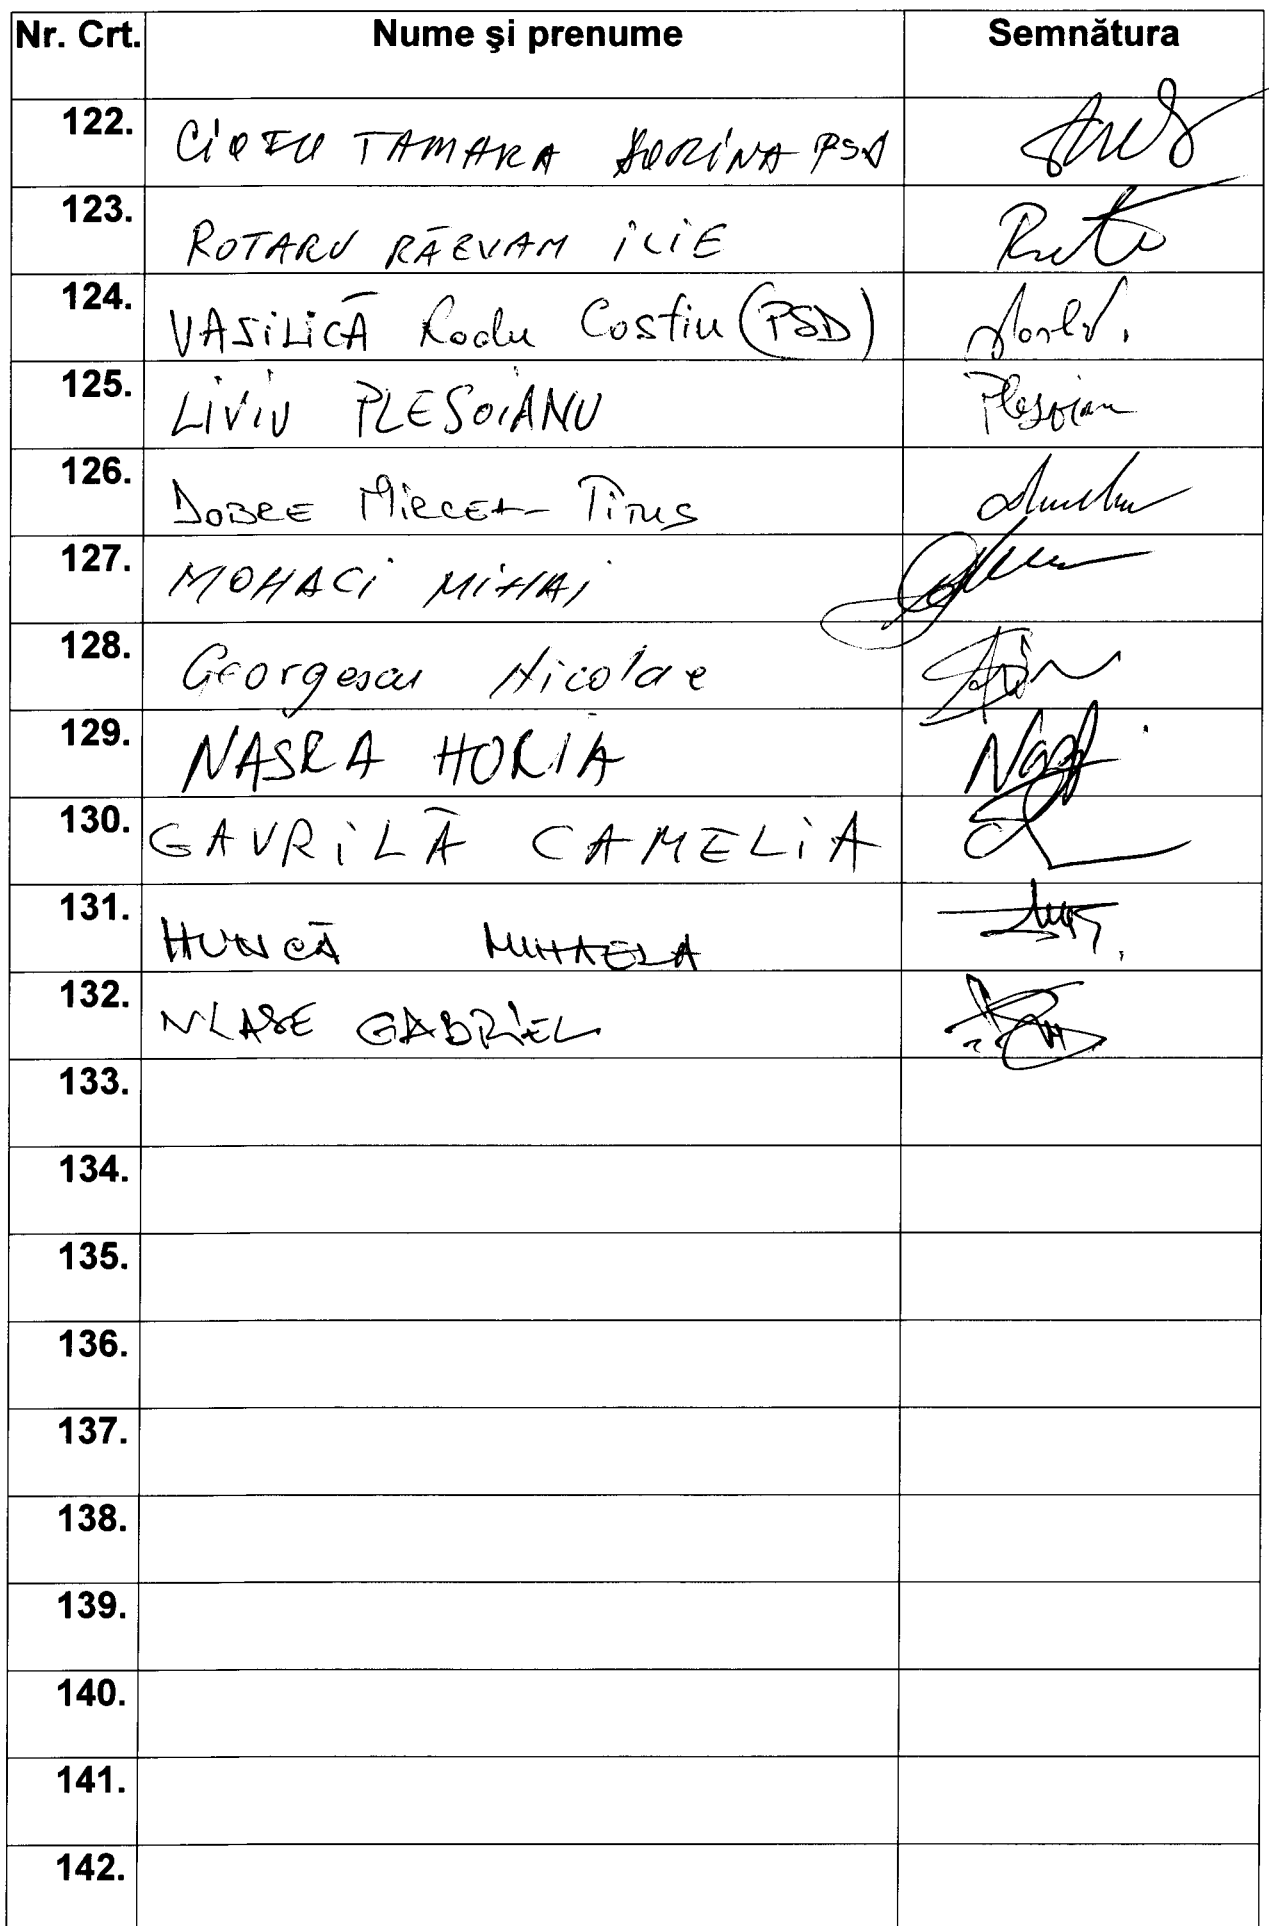 Nr. Crt. Nume și prenume Semnătura
122. CIOFU TAMARA DORINA PSD
123. ROTARU RĂZVAN ILIE
124. VASILICĂ Radu Costin (PSD)
125. LIVIU PLEȘOIANU Pleșoianu
126. DOBRE MIRCEA TITUS
127. MOHACI MIHAI
128. Georgescu Nicolae
129. NASRA HORIA
130. GAVRILĂ CAMELIA
131. HUNCĂ MIHAELA
132. VLASE GABRIEL
133.
134.
135.
136.
137.
138.
139.
140.
141.
142.